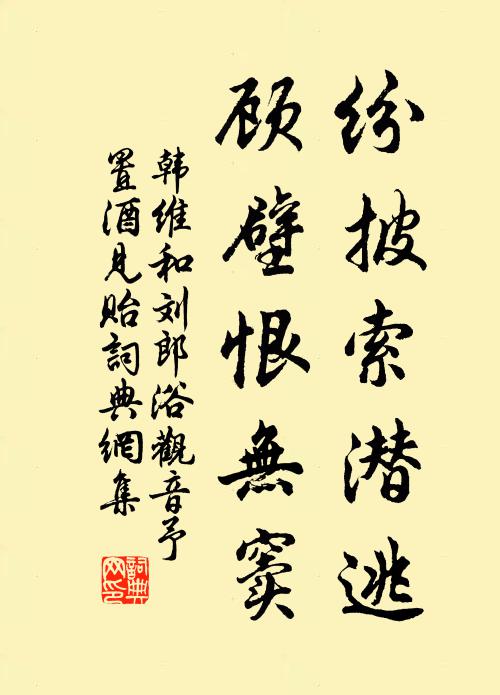 纷披索潜逃
顾壁恨無窦
韩维和刘郎浴觀音予
置酒見贻詞典網集
詞典网印